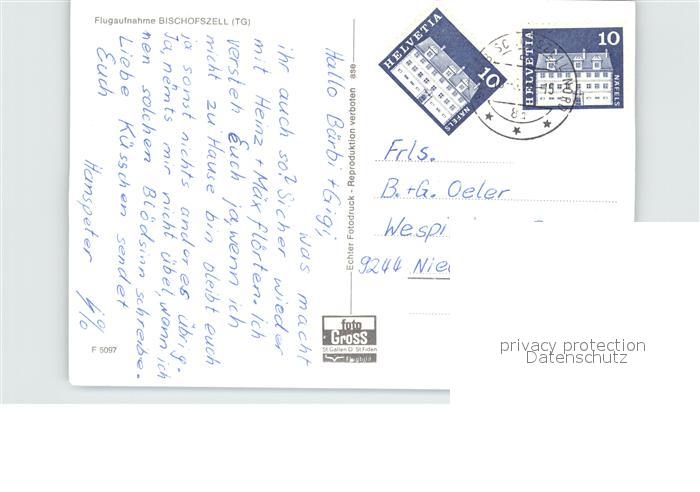 Flugaufnahme BISCHOFSZELL (TG)
Hallo Bärbi + Gigi,
was macht
ihr auch so? Sicher wieder
mit Heinz + Max flörten. Ich
versteh Euch ja, wenn ich
nicht zu Hause bin bleibt euch
ja sonst nichts anderes übrig.
Ja, nemts mir nicht übel, wann ich
nen solchen Blödsinn schreibe.
Liebe Küsschen sendet
Euch
Hanspeter
F 5097
Echter Fotodruck - Reproduktion verboten
foto
Gross
St.Gallen O St.Fiden
Flugbild
HELVETIA
10
NÄFELS
HELVETIA
10
NÄFELS
Frls.
B.+G. Oeler
Wespi
9244 Nie
privacy protection
Datenschutz